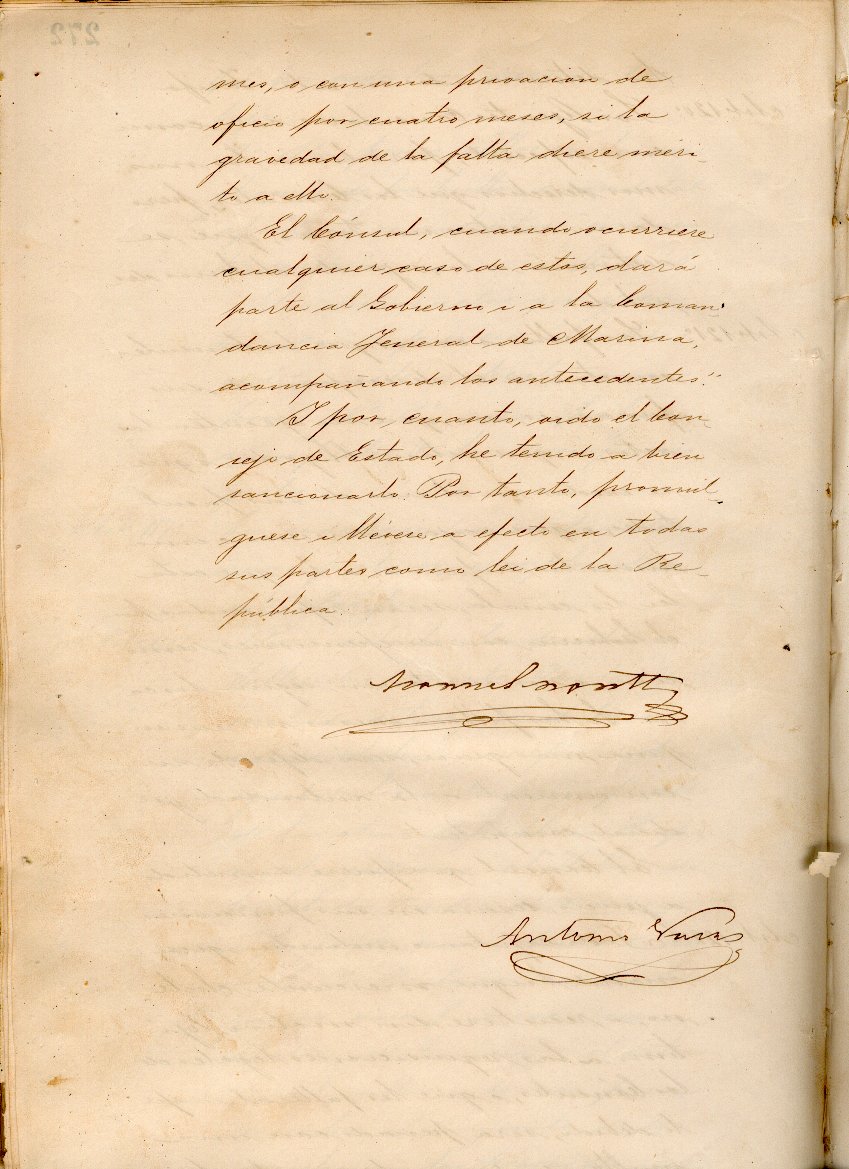 mes, o con una privacion de
oficio por cuatro meses, si la
gravedad de la falta diere méri-
to a ello.
El Cónsul, cuando ocurriere
cualquier caso de estos, dará
parte al Gobierno i a la Coman-
dancia Jeneral de Marina,
acompañando los antecedentes."
I por cuanto, oido el Con-
sejo de Estado, he tenido a bien
sancionarlo: Por tanto, promúl-
guese i llévese a efecto en todas
sus partes como lei de la Re-
pública.
Manuel Montt
Antonio Varas
272